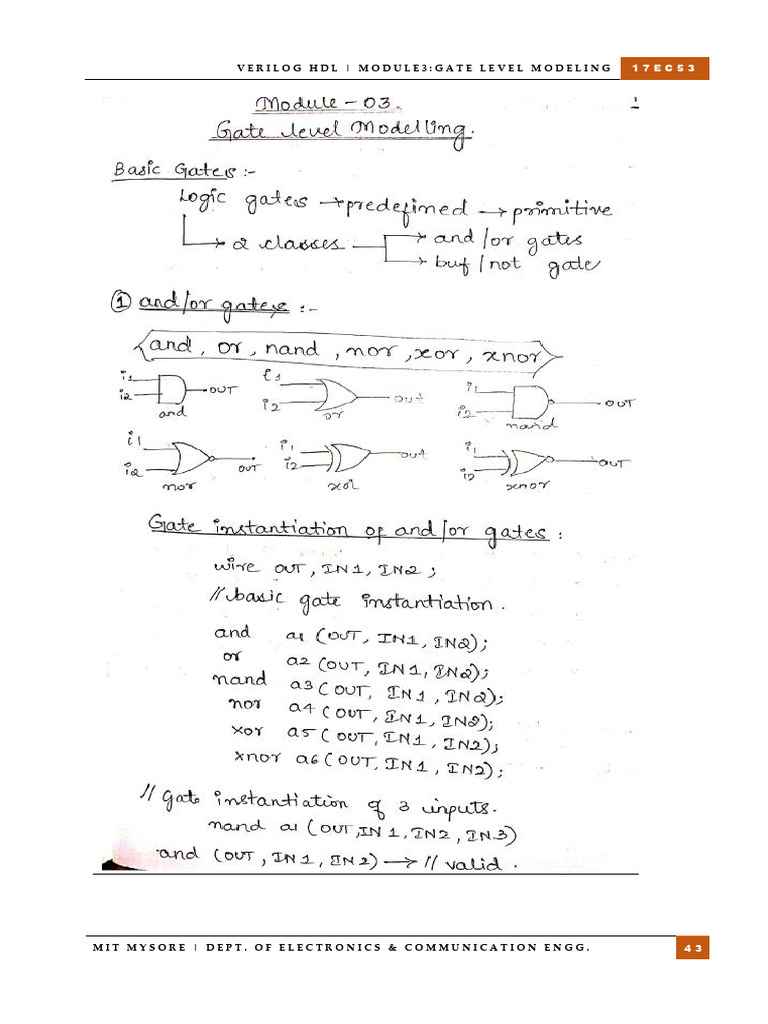 VERILOG HDL | MODULE3:GATE LEVEL MODELING 17EC53
Module - 03. 1
Gate level Modelling.
Basic Gates :-
Logic gates → predefined → primitive
2 classes → and/or gates
→ buf/not gate
① and/or gates :-
and, or, nand, nor, xor, xnor
i1 i2 OUT and
i1 i2 out or
i1 i2 OUT nand
i1 i2 OUT nor
i1 i2 out xor
i1 i2 OUT xnor
Gate instantiation of and/or gates :
wire OUT, IN1, IN2 ;
// basic gate instantiation.
and a1 (OUT, IN1, IN2);
or a2 (OUT, IN1, IN2);
nand a3 (OUT, IN1, IN2);
nor a4 (OUT, IN1, IN2);
xor a5 (OUT, IN1, IN2);
xnor a6 (OUT, IN1, IN2);
// Gate instantiation of 3 inputs.
nand a1 (OUT, IN1, IN2, IN3)
and (OUT, IN1, IN2) → // valid.
MIT MYSORE | DEPT. OF ELECTRONICS & COMMUNICATION ENGG. 43